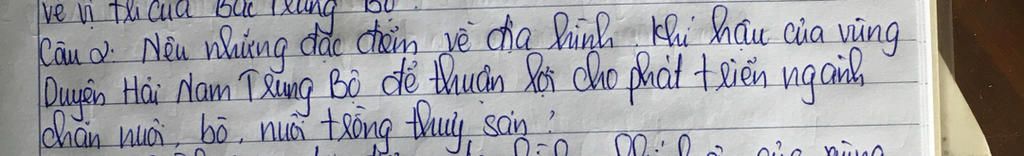 về vị trí của Bắc Trung Bộ.
Câu 2: Nêu những đặc điểm về địa hình, khí hậu của vùng
Duyên Hải Nam Trung Bộ để thuận lợi cho phát triển ngành
chăn nuôi, bò, nuôi trồng thuỷ sản?
của vùng